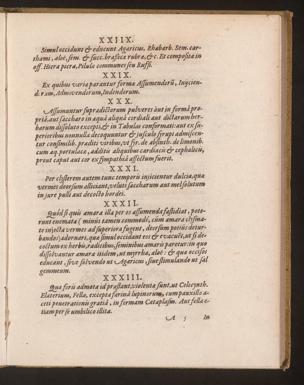 XXIIX.
Simul occidunt & educunt Agaricus, Rhabarb. Sem. car-
thami, aloë, sem. & succ. brassicæ rubræ, &c. Et composita in
off. Hiera picra, Pilulæ communes seu Ruffi.
XXIX.
Ex quibus varia parantur formæ Assumendorū, Injicien-
dorum, Admovendorum, Indendorum.
XXX.
Assumuntur supradictorum pulveres aut in formâ pro-
priâ, aut saccharo in aquâ aliquâ cordiali aut dictarum her-
barum dissoluto excepti, & in Tabulas conformati: aut ex su-
perioribus nonnulla decoquuntur & jusculo syrupi admiscen-
tur consimilib. præditi viribus, ut syr. de absinth. de limonib.
cum aq. portulacæ, additis aliquibus cardiacis & cephalicis,
prout caput aut cor sympathiâ affectum fuerit.
XXXI.
Per clysterem autem tunc temporis injicientur dulcia, quæ
vermes deorsum alliciant, veluti saccharum aut mel solutum
in jure pulli aut decocto hordei.
XXXII.
Quòd si quis amara illa per os assumenda fastidiat, pote-
runt enemata (minùs tamen commodè, cùm amara clysma-
te injecta vermes ad superiora fugent, deorsum potiùs detur-
bandos) adornari, quæ simul occidant eos & evacuēt, ut si de-
coctum ex herbis, radicibus, seminibus amaris paretur: in quo
dissolvantur amara itidem, ut myrrha, aloë: & quæ occisos
educant, sive lubricando ut Agaricus, sive stimulando ut sal
gemmeum.
XXXIII.
Quæ foris admota id præstant, violenta sunt, ut Colocynth.
Elaterium, Fella, excepta farinâ lupinorum, cum pauxillo a-
ceti penetrationis gratiâ, in formam Cataplasm. Aut fella e-
tiam per se umbilico illita.
A 5 In